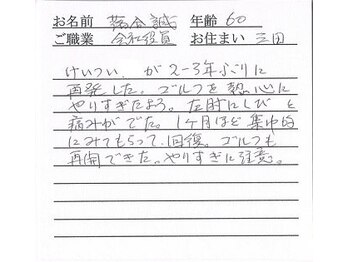 お名前 誠 年齢 60
ご職業 会社役員 お住まい 三田
けいつい が2~3年ぶりに
再発した。ゴルフを熱心に
やりすぎたよう。左肘にしびと
痛みがでた。1ヶ月ほど集中的
にみてもらって、回復。ゴルフも
再開できた。やりすぎに注意。